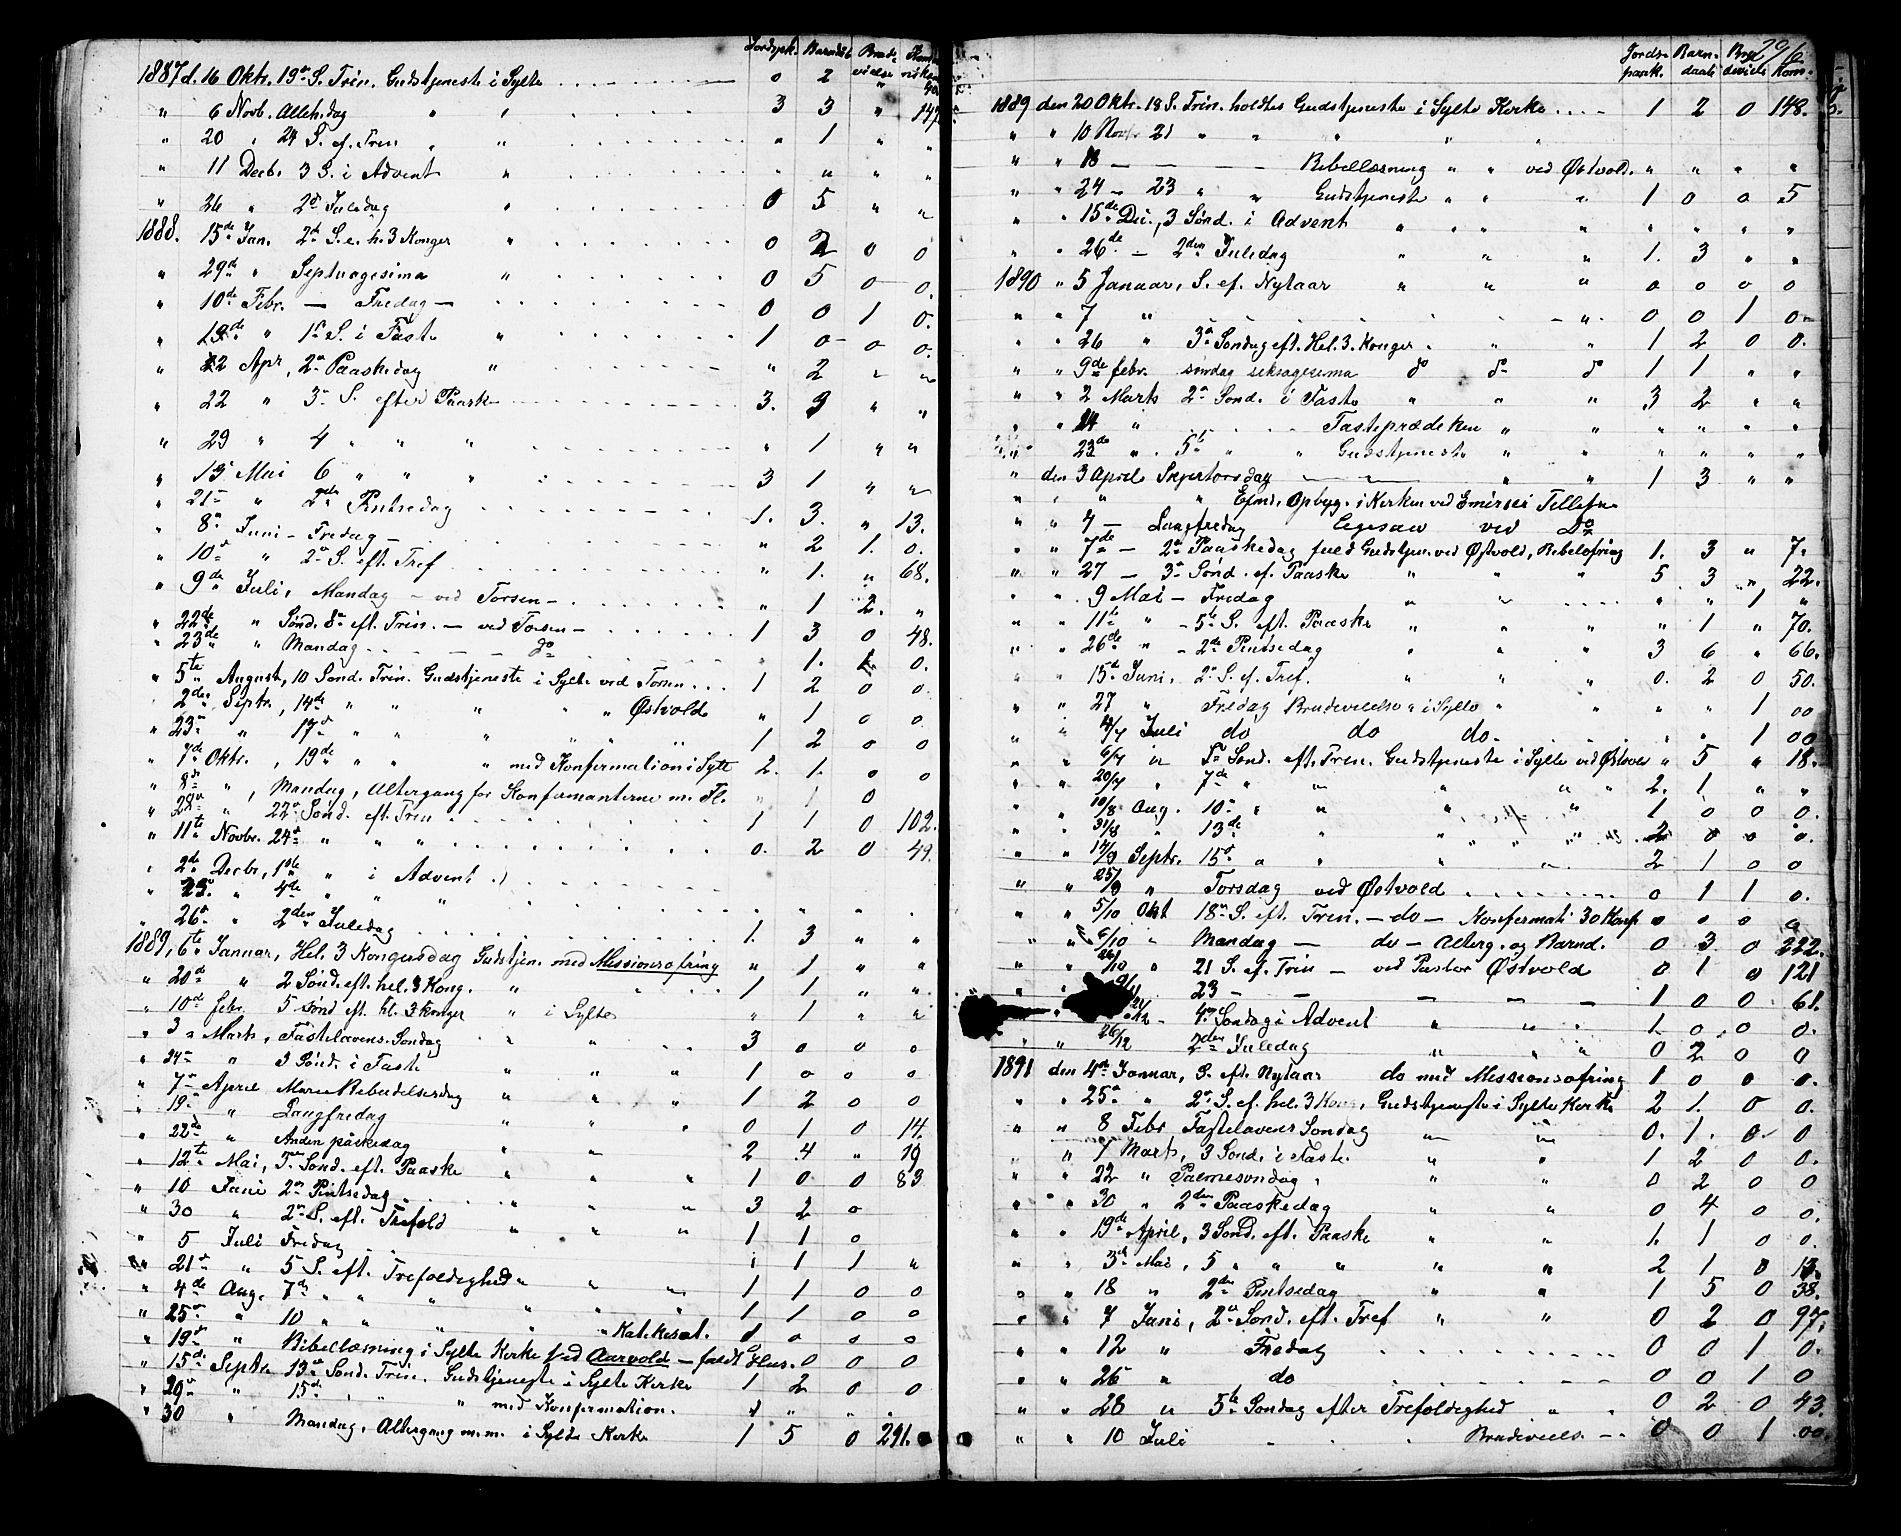 Jordspk. Barndåb Brudevielse
1887 d. 16 Oktr. 19de S. Trin. Gudstjeneste i Sylte 0 2 "
" 6 Novb. Alleh.dag " " 3 3 " 147
" 20 " 24 S. ef. Trin " " " 1 " "
" 11 Decbr. 3 S. i Advent " " " " "
" 26 " 2d Juledag " 0 5 " "
1888. 15de Jan. 2d S. e. h. 3 Konger " 0 2 0 0
" 29d " Septuagesima " 0 5 0 0.
" 10de Febr. — Fredag — 0 0 1 0.
" 19de " 1ste S. i Faste " 1 0 0 0.
" 2 Apr, 2n Paaskedag " " 2 " "
" 22 " 3n S. efter Paaske 3. 3 " "
" 29 " 4 " " " " 1 " "
" 13 Mai 6 " " " 3 1 " "
" 21 " 2de Pintsedag 1. 3. " 13.
" 8n Juni - Fredag " 2 1. 0.
" 10n " 2n S. eft. Tref " 1. " 68.
" 9de Juli, Mandag - ved Torsen - " 1 2. "
" 22de " Sønd. 8n eft. Trin. — ved Torsen — 1 3 0 48.
" 23de " Mandag - - do " 1. 1 0.
" 5te August, 10 Sønd. Trin. Gudstjeneste i Sylte ved Torsen . . . 1 2 0 0.
" 2den Septr., 14de " " " " Østvold " 1 0 0.
" 23n " 17n " " " " " 1 2 0 0
" 7de Oktr., 19de " " " med Konfirmation i Sylte 2. 1. 0 0
" 8n ", Mandag, Altergang for Konfirmanterne m. Fl. " 1 0
" 28n " 22n Sønd. eft. Trin 1 1 0 102.
" 11te Novbr. 24n " " " 0. 2 0 49.
" 2de Decbr, 1ste " i Advent
" 23. " 4de " " "
" 26n " 2den Juledag 1. 3 " "
1889, 6te Januar, Hel. 3 Kongersdag Gudstjen. med Missionsofring " 1 " "
" 20d " 2 Sønd. eft. hel. 3 Kong. " 1 1 " "
" 10d febr. 5 sønd eft. hl. 3 konger " i Sylte " 1 " "
" 3 " Marts, Fastelavens Søndag " " 3 0 0 0
" 24 " 3 Sønd. i Faste " " " 1 0 0 0
" 7n April Mariæ Bebudelsesdag " " " 1 2 0 0
" 19n " Langfredag " " " 0 1 0 14.
" 22d " Anden påskedag " " 2 4 " 19
" 12te Mai, 3n Sønd. eft. Paaske " " " 1 0 0 83
" 10 Juni 2n Pintsedag " " 3 2 0
" 30 " 2n S. eft. Trefold " " " 1 1 0
" 5 Juli Fredag 1 1 1 "
" 21n " 5 S. eft. Trefoldighed " " " 1 1 0 0
" 4de Aug. 7d " " " " " 1 1 0 0
" 25n " 10 " " " " Katekesat. 1 0 0 0
" 19n " Bibellæsning i Sylte Kirke ved Aarvold — fuldt Hus. 0 0 0
" 15d Septbr 13n Sønd. Trin. Gudstjeneste i Sylte Kirke 1 2 0 0
" 29n " 15d " " med Konfirmation. " " " "
" 30 " Mandag, Altergang m.m. i Sylte Kirke 1 5 0 291.
296
Jordspaak. Barndaab Brudevielse Kom.
1889 den 20 Oktr. 18 S. Trin. holdtes Gudstjeneste i Sylte Kirke 1 2 0 148.
" " 10 Novr 21 " " " " "
" " — — — Bibellæsning " " ved Østvold. " " " "
" " 24 - 23 " " Gudstjeneste " " " 1 0 0 5
" " 15de Dec., 3 Sønd. i Advent " " " " " " "
" " 26de - 2den Juledag " " " 1. 3 " "
1890 " 5 Januar, S. ef. Nytaar " " " 0 0 0 0
" " 7 " " 0 0 1 0
" " 26 " 3n Søndag eft. Hel. 3. Konger " " " 1 2 0 0.
" " 9de febr. søndag seksagesima do do do 1 1 " "
" " 2 Marts 2n Sønd. i Faste " " " 3 2 " "
" " " Fasteprædeken " " " " " "
" " 23de " 5te " " Gudstjeneste " " " " " "
" den 3 April Skjertorsdag " " 1 3 " "
" " " " Opbyg. i Kirken ved
" " 4 - Langfredag ved Do
" " 7de - 2n Paaskedag fuld Gudstjen. ved Østvold, Bibelofring 1. 3 " 7.
" " 27 - 3n Sønd. ef. Paaske " " " 5 3 " 22.
" " 9 Mai - Fredag " " " " 1 "
" " 11te " - 5te S. eft. Paaske " " " " 1 " 70.
" " 26de " - 2de Pintsedag " " " 3 6 " 66.
" " 15d Juni, 2n S. ef. Tref. " " " 0. 2 0 50.
" " 27 " Fredag Brudevielse i Sylte " " " 1 00
" " 4/7 Juli do do do " " 1 00
" " 6/7 " Sønd. eft. Tren. Gudstjeneste i Sylte ved Østvold " 5 " 18.
" " 20/7 " 7de " " " " 2. 1 " "
" " 10/8 Aug. 10n " " " " 1 0 0 0.
" " 31/8 " 13de " " " " 2 0 0 0.
" " 14/9 Septr. 15n " " " " 2 1 0 0
" " 25/9 " Torsdag ved Østvold 0 1 1 0.
" " 5/10 Okt 18n S. eft. Tren. — do — Konfermati 30 Konf. 0 0 0 0
" " 6/10 " Mandag — do — Alterg. og Barnd. 0 3 0 222.
" " 26/10 " 21 S. ef. Trin — ved Pastor Østvold 0 1 0 121
" 9/11 23 — — — — 1 0 0 61.
" 21/12 - 4n Søndag i Advent " " " 1. 0 0 0.
" " 26/12 2den Juledag " " " 0 2 0 0
1891 den 4n Januar, S. eft. Nytaar do med Missionsofring 1 0 0 0.
" " 25n " 2n S. ef. hel. 3 Kong, Gudstjeneste i Sylte Kirke 2 1. 0 0.
" " 8 Febr Fastelavens Søndag " " 0. 1. 0. 0
" " 7 Marts, 3 Sønd. i Faste " " 1 2 0 0.
" " 22 " Palmesøndag " " 0 2 0 0
" " 30 " 2den Paaskedag " " 0 4 0 0.
" " 19de April, 3 Sønd. eft. Paaske " " 1. 1 0 0.
" " 3de Mai, 5 " " " " " 2 1 0 13.
" " 18 " 2den Pintsedag " " 1 5 0 38.
" " 7 Juni, 2n Sønd. eft. Tref " " 0 2 0 97.
" " 12 " Fredag 0 0 1 0.
" " 26 " do 0 0 1 0
" " 28 " 5te Søndag efter Trefoldighed " " 0 2 0 43.
" " 10 Juli Brudeviels. 0 0 1 00.